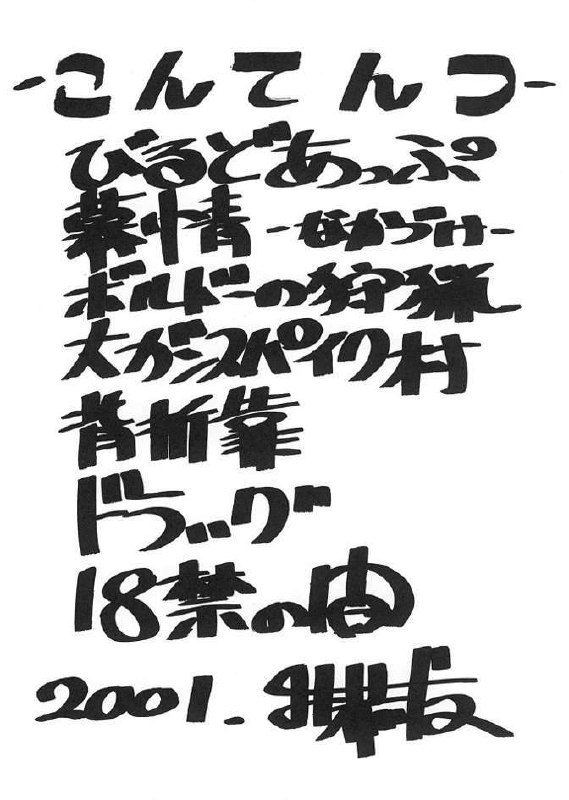 -こんてんつ-
びるどあっぷ
慕情 -なからづけ-
ボルドーの狩猟
大がンスパイク村
背折靠
ドラッグ
18禁の間
2001.